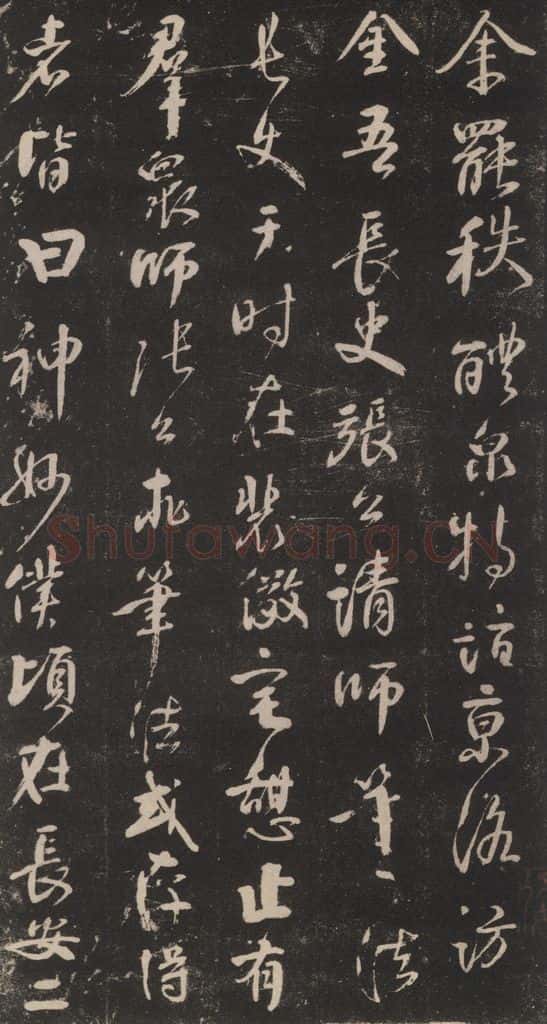 余罷秩醴泉特詣京洛訪
金吾長史張公請師筆法
長史于时在裴儆宅憩止有
羣衆師張公求筆法或存得
者皆曰神妙僕頃在長安二
Shufawang.CN